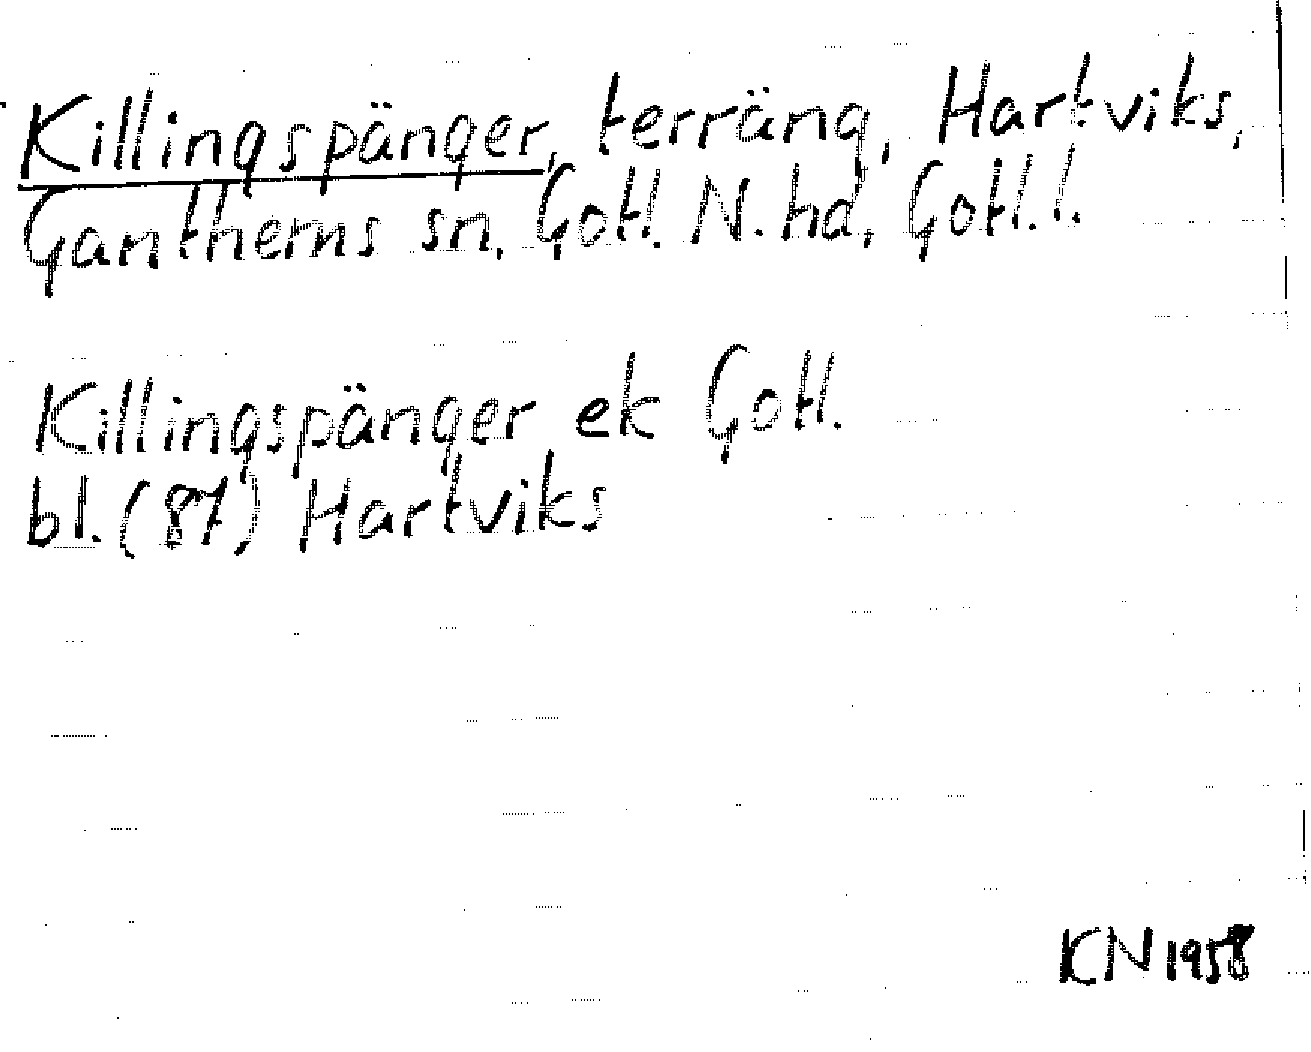 Killingspänger, terräng, Hartviks,
Ganthems sn, Gotl. N. hd, Gotl.!
Killingspänger ek Gotl.
bl. (87) Hartviks
KN 1958